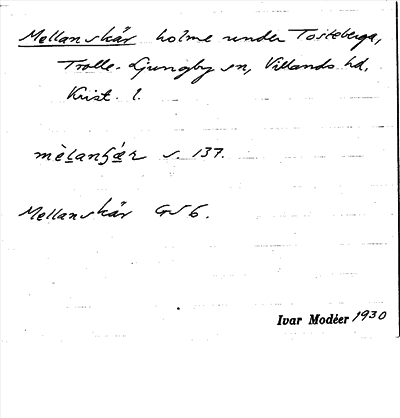 Mellanskär holme under Tosteberga,
Trolle-Ljungby sn, Villands hd,
Krist. l.
mèlanʃǽr s. 137.
Mellanskär GS 6.
Ivar Modéer 1930